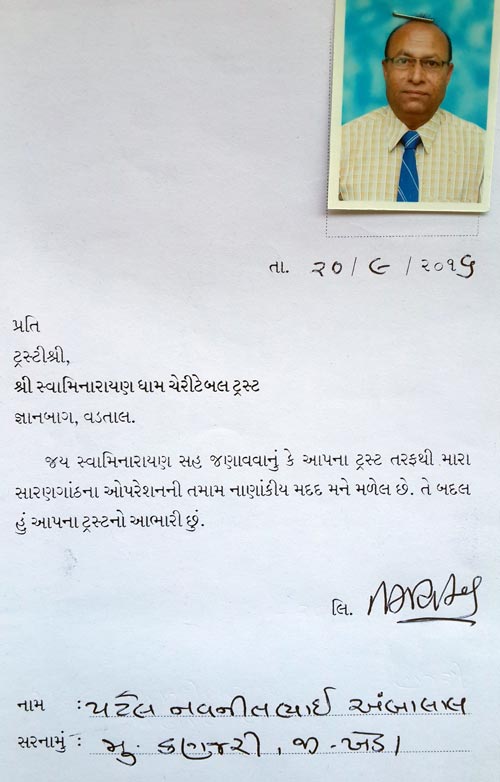 તા. ૨૦/૯/૨૦૧૬
પ્રતિ
ટ્રસ્ટીશ્રી,
શ્રી સ્વામિનારાયણ ધામ ચેરીટેબલ ટ્રસ્ટ
જ્ઞાનબાગ, વડતાલ.
જય સ્વામિનારાયણ સહ જણાવવાનું કે આપના ટ્રસ્ટ તરફથી મારા
સારણગાંઠના ઓપરેશનની તમામ નાણાંકીય મદદ મને મળેલ છે. તે બદલ
હું આપના ટ્રસ્ટનો આભારી છું.
લિ.
નામ : પટેલ નવનીતભાઈ અંબાલાલ
સરનામું : મુ. કણજરી, જી-ખેડા